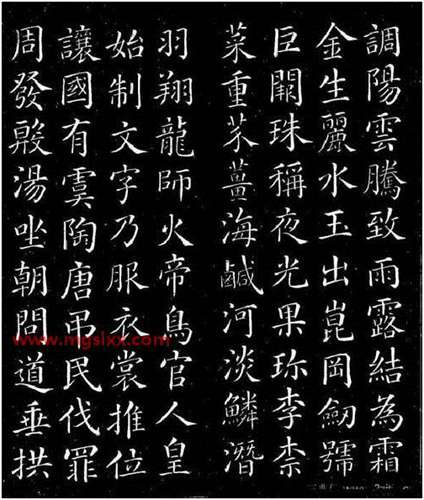 調陽雲騰致雨露結為霜
金生麗水玉出崑岡劒號
巨闕珠稱夜光果珎李柰
菜重芥薑海鹹河淡鱗潛
羽翔龍師火帝鳥官人皇
始制文字乃服衣裳推位
讓國有虞陶唐弔民伐罪
周發殷湯坐朝問道垂拱
www.mgslxx.com